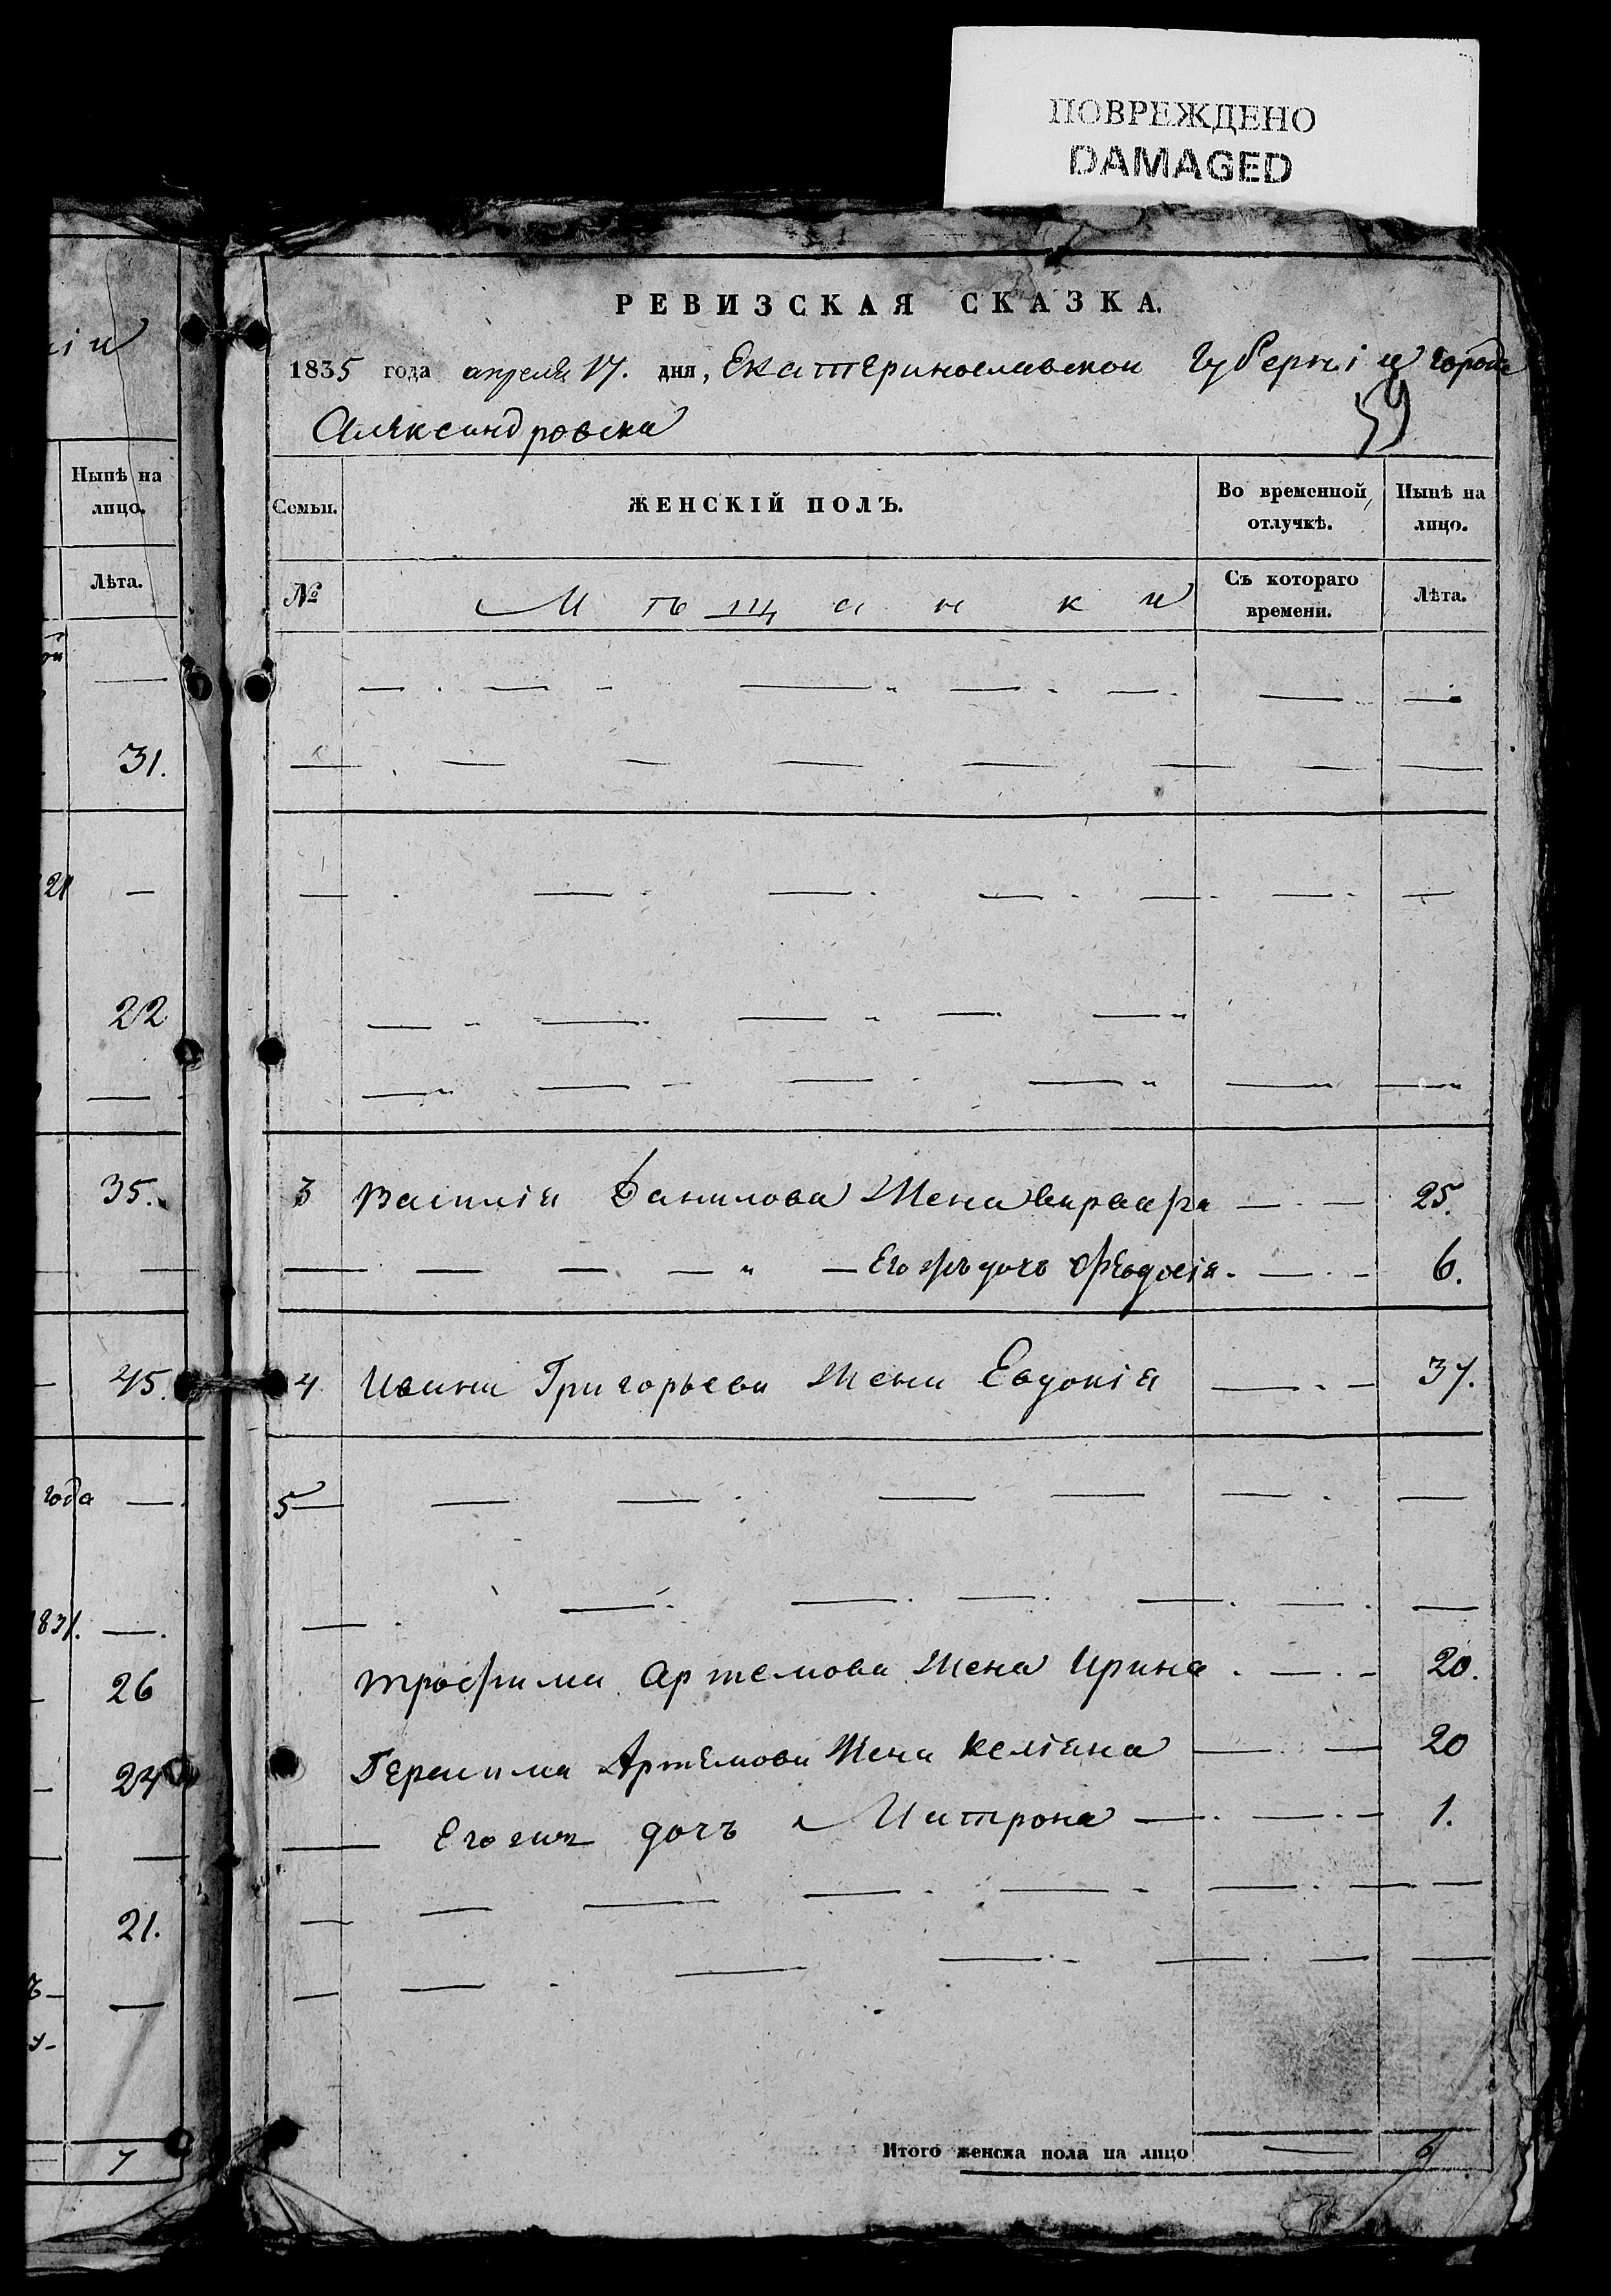 ПОВРЕЖДЕНО
DAMAGED
РЕВИЗСКАЯ СКАЗКА.
1835 года апреля 17. дня, Екатеринославской Губерніи города
59
Александровска
Нынѣ на лицо.
Семьи.
ЖЕНСКІЙ ПОЛЪ.
Во временной отлучкѣ.
Нынѣ на лицо.
Лѣта.
№
Мѣщанки
Съ котораго времени.
Лѣта.
31.
21 —
22
35. 3 Василія Данилова Жена Варвара — . — 25.
— — — — " — Его жъ дочь Федосія . — . — 6.
45. 4 Ивана Григорьева Жена Евдокія — . — 37.
года — 5 — — — . — — — . — —
1831. — .
26 Трофима Артемова Жена Ирина . — . — 20.
24 Герасима Артемова Жена — — 20
— дочь Матрона — . — . — 1.
21.
7 Итого женска пола на лицо — 6